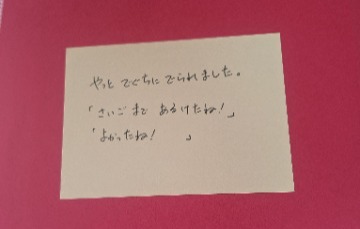 やっと でぐちに でられました。
「さいごまで あるけたね!」
「よかったね!　　」